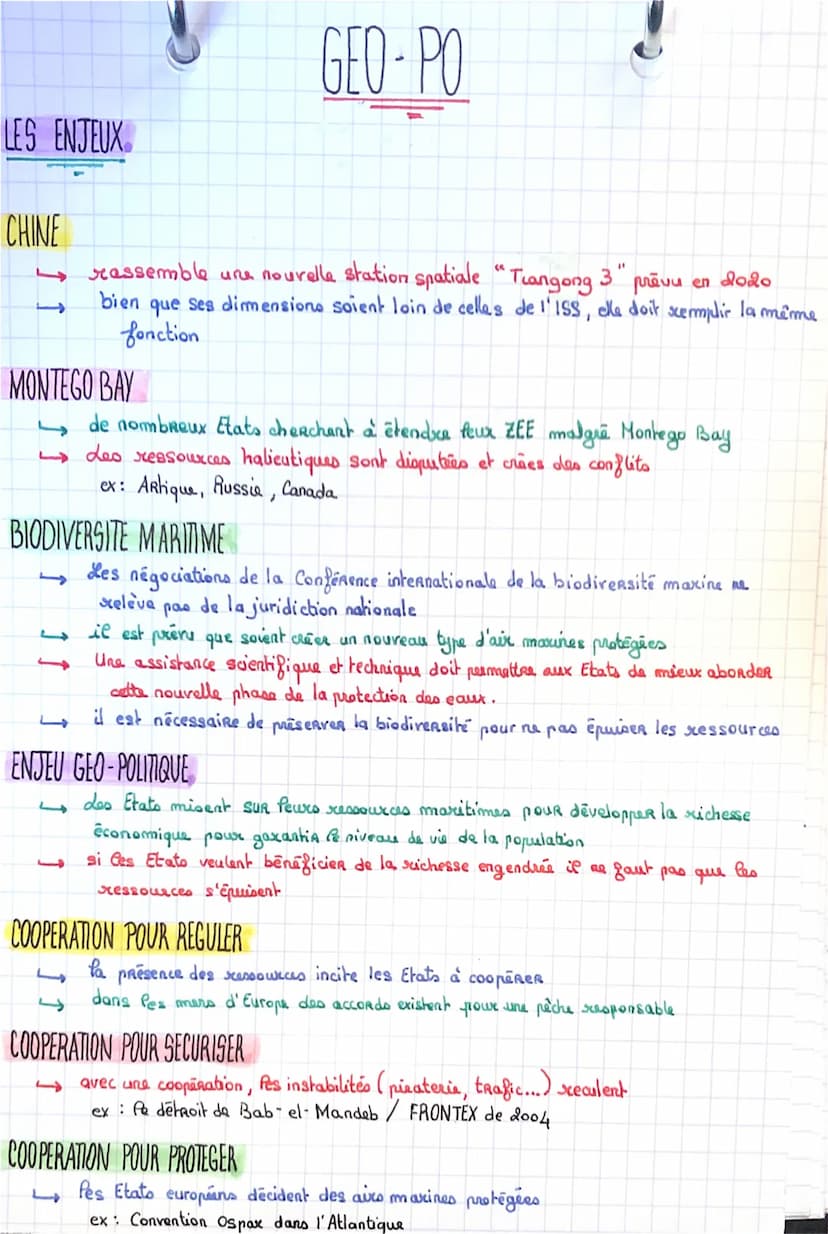 GEO-PO
LES ENJEUX.
CHINE
↳ rassemble une nouvelle station spatiale "Tiangong 3" prévu en 2020
→ bien que ses dimensions soient loin de celles de l'ISS, elle doit remplir la même
fonction
MONTEGO BAY
↳ de nombreux Etats cherchent à étendre leur ZEE malgré Montego Bay
↳ des ressources halieutiques sont disputées et crées des conflits
ex: Artique, Russie, Canada
BIODIVERSITE MARITIME
↳ Les négociations de la Conférence internationale de la biodiversité marine ne
relève pas de la juridiction nationale
↳ il est prévu que soient créer un nouveau type d'air marines protégées
→ Une assistance scientifique et technique doit permettre aux Etats de mieux aborder
cette nouvelle phase de la protection des eaux.
↳ il est nécessaire de préserver la biodiversité pour ne pas épuiser les ressources
ENJEU GEO-POLITIQUE
↳ des Etats misent sur leurs ressources maritimes pour développer la richesse
économique pour garantir le niveau de vie de la population
↳ si les Etats veulent bénéficier de la richesse engendrée il ne faut pas que les
ressources s'épuisent
COOPERATION POUR REGULER
↳ la présence des ressources incite les Etats à coopérer
↳ dans les mers d'Europe des accords existent pour une pêche responsable
COOPERATION POUR SECURISER
↳ avec une coopération, les instabilités (piraterie, trafic...) reculent
ex : le détroit de Bab-el-Mandeb / FRONTEX de 2004
COOPERATION POUR PROTEGER
↳ les Etats européens décident des aires marines protégées
ex : Convention Ospar dans l'Atlantique